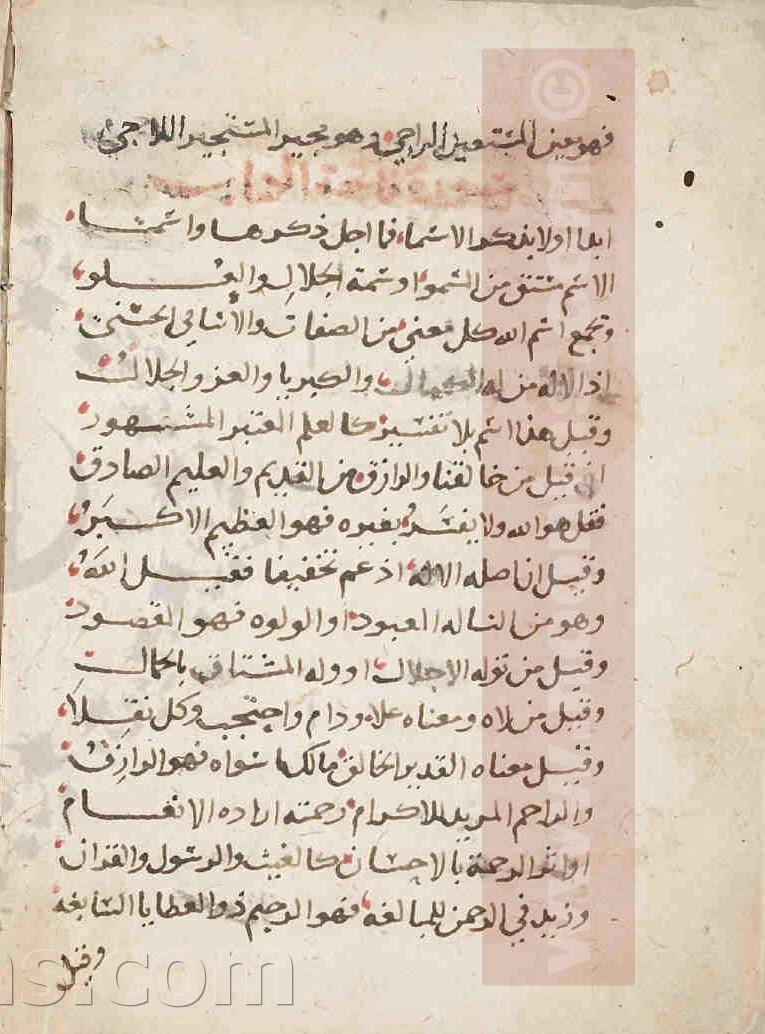 فهو معين المستعين الراجي وهو مجير المستجير اللاجي
ابدا اولا بذكر الاسماء فما اجل ذكرها واسمتا
الاسم مشتق من السمو او سمة الجلال والعلو
وتجمع اسم الله كل معنى من الصفات والاسامي الحسنى
اذ الاله من له الكمال والكبريا والعز والجلال
وقيل هذا اسم بلا تفسير كالعلم المعتبر المشهور
ان قيل من خالقنا والرازق من القديم والعليم الصادق
فقل هو الله ولا يفسر بغيره فهو العظيم الاكبر
وقيل ان اصله الاله ادغم تخفيفا فقيل الله
وهو من التاله المعبود او الولوه فهو المقصود
وقيل من توله الاجلال او وله المشتاق بالجمال
وقيل من لاه ومعناه علا ودام واحتجب وكل نقلا
وقيل معناه القدير الخالق مالك ما سواه فهو الرازق
والراحم المريد للاكرام رحمته اراده الانعام
او اثر الرحمة بالاحسان كالغيث والرسول والقران
وزيد في الرحمن للمبالغه فهو الرحيم ذو العطايا السابغه
وقيل
ns.com
©